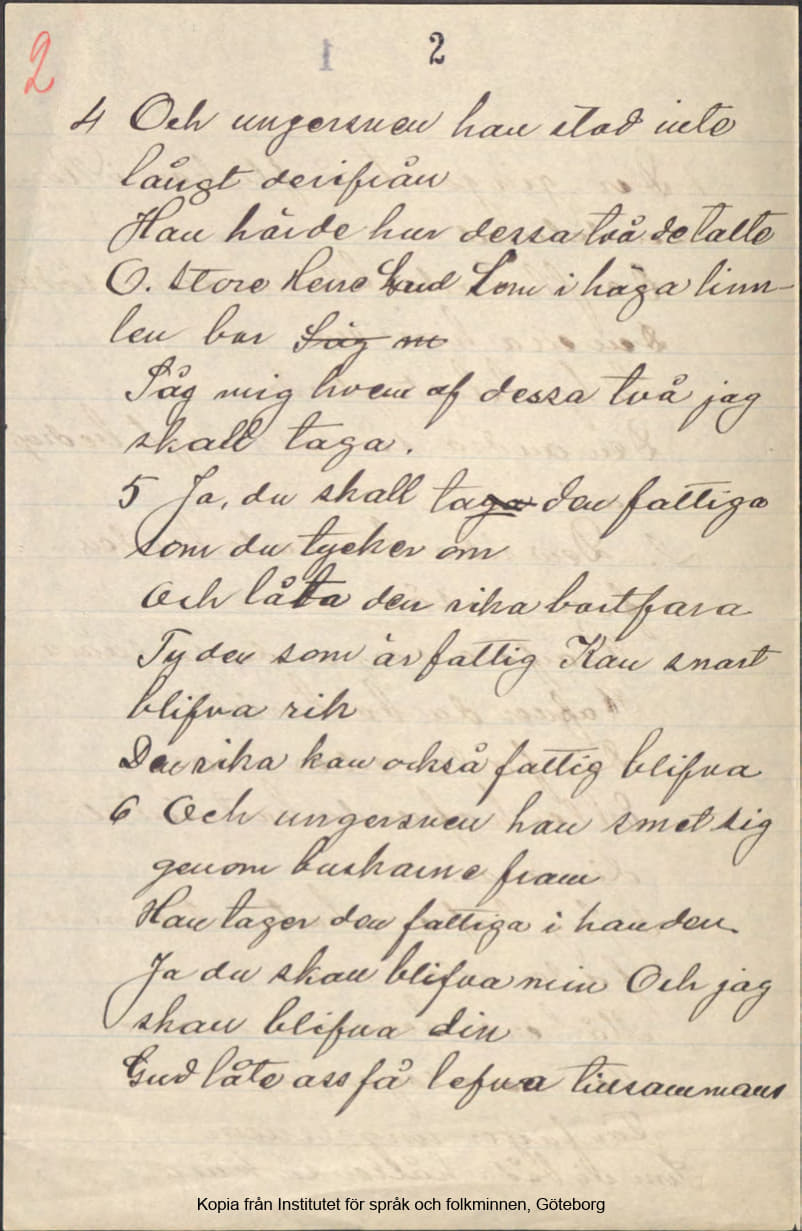 2 1 2
4 Och ungersven han stod inte
långt derifrån
Han hörde hur dessa två de talte
O. Store Herre Gud Som i höga himm-
len bor Säg m
Säg mig hvem af dessa två jag
skall taga.
5 Ja, du skall taga den fattiga
som du tycker om
Och låta den rika bortfara
Ty den som är fattig Kan snart
blifva rik
Den rika kan också fattig blifva
6 Och ungersven han smet sig
genom buskarne fram
Han tager den fattiga i handen
Ja du skall blifva min Och jag
skall blifva din
Gud låte oss få lefva tillsammans
Kopia från Institutet för språk och folkminnen, Göteborg